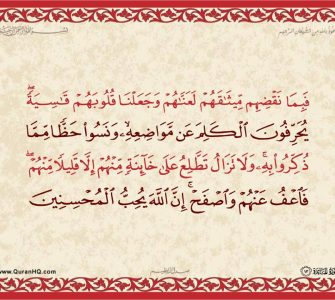 فَبِمَا نَقْضِهِم مِّيثَٰقَهُمْ لَعَنَّٰهُمْ وَجَعَلْنَا قُلُوبَهُمْ قَٰسِيَةً ۖ
يُحَرِّفُونَ ٱلْكَلِمَ عَن مَّوَاضِعِهِۦ ۙ وَنَسُوا۟ حَظًّا مِّمَّا
ذُكِّرُوا۟ بِهِۦ ۚ وَلَا تَزَالُ تَطَّلِعُ عَلَىٰ خَآئِنَةٍ مِّنْهُمْ إِلَّا قَلِيلًا مِّنْهُمْ ۖ
فَٱعْفُ عَنْهُمْ وَٱصْفَحْ ۚ إِنَّ ٱللَّهَ يُحِبُّ ٱلْمُحْسِنِينَ
www.QuranHQ.com